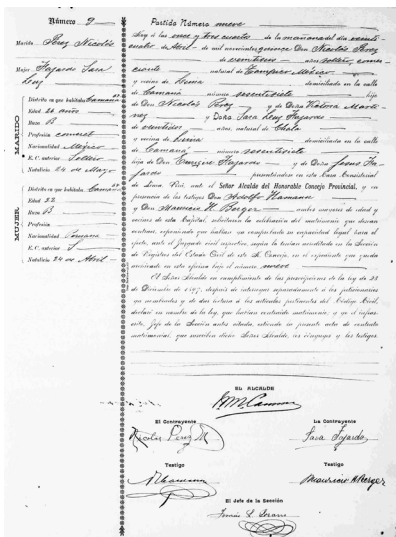 Número 9
Marido Pérez Nicolás
Mujer Fajardo Sara
Luz
MARIDO
Distrito en que habitaba Camaná
Edad 26 años
Raza B
Profesión
Nacionalidad Méjico
E. C. anterior Soltero
Natalicio 24 de Mayo
MUJER
Distrito en que habitaba Camaná
Edad 22
Raza B
Profesión
Nacionalidad Peruana
E. C. anterior S
Natalicio 24 de Abril
Partida Número nueve
Hoy á las once y tres cuartos de la mañana del día veinti
cuatro de Abril de mil novecientos quince Don Nicolás Pérez
de veintiseis años, soltero, comer
ciante natural de Tampico Méjico
y vecino de Lima domiciliado en la calle
de Camaná número sesentisiete hijo
de Don Nicolás Pérez y de Doña Victoria Martí
nez y Doña Sara Luz Fajardo
de veintidos años, natural de Chala
y vecina de Lima domiciliada en la calle
de Camaná número sesentisiete
hija de Don Enrique Fajardo y de Doña Jesús Fa
jardo presentáronse en esta Casa Consistorial
de Lima Perú, ante el Señor Alcalde del Honorable Concejo Provincial, y en
presencia de los testigos Don Adolfo Hamann
y Don Mauricio H. Berger ambos mayores de edad y
vecinos de esta Capital, solicitaron la celebración del matrimonio que desean
contraer, exponiendo que habían ya comprobado su capacidad legal para el
efecto, ante el Juzgado civil respectivo, según la tienen acreditada en la Sección
de Registros del Estado Civil de este H. Concejo, en el expediente que queda
archivado en esta oficina bajo el número nueve
El Señor Alcalde en cumplimiento de las prescripciones de la ley de 23
de Diciembre de 1897, después de interrogar separadamente á los peticionarios
ya nombrados y de dar lectura á los artículos pertinentes del Código Civil,
declaró en nombre de la ley, que habían contraido matrimonio; y yo el infras-
crito, Jefe de la Sección antes citada, extiendo la presente acta de contrato
matrimonial, que suscriben dicho Señor Alcalde, los cónyuges y los testigos.
EL ALCALDE
El Contrayente
La Contrayente
Nicolás Pérez M
Sara Fajardo
Testigo
Testigo
A Hamann
Mauricio H Berger
El Jefe de la Sección